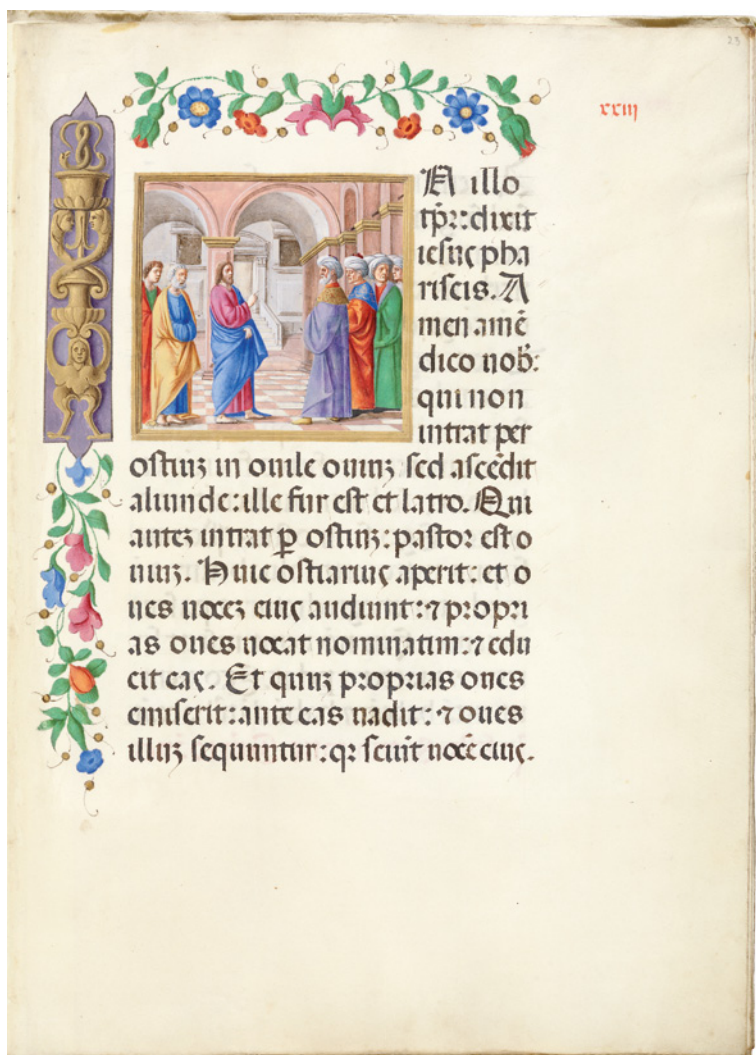 23
xxiij
N illo
tp̄r: dixit
iesus pha
riseis. A
men amē
dico uob̄:
qui non
intrat per
ostiuʒ in ouile ouiuʒ sed ascēdit
aliunde: ille fur est et latro. Qui
auteʒ intrat ꝑ ostiuʒ: pastor est o
uiuʒ. Huic ostiarius aperit: et o
ues uoceʒ eius audiunt: ⁊ propri
as oues uocat nominatim: ⁊ edu
cit eas. Et quuʒ proprias oues
emiserit: ante eas uadit: ⁊ oues
illuʒ sequuntur: qꝛ sciūt uocē eius.